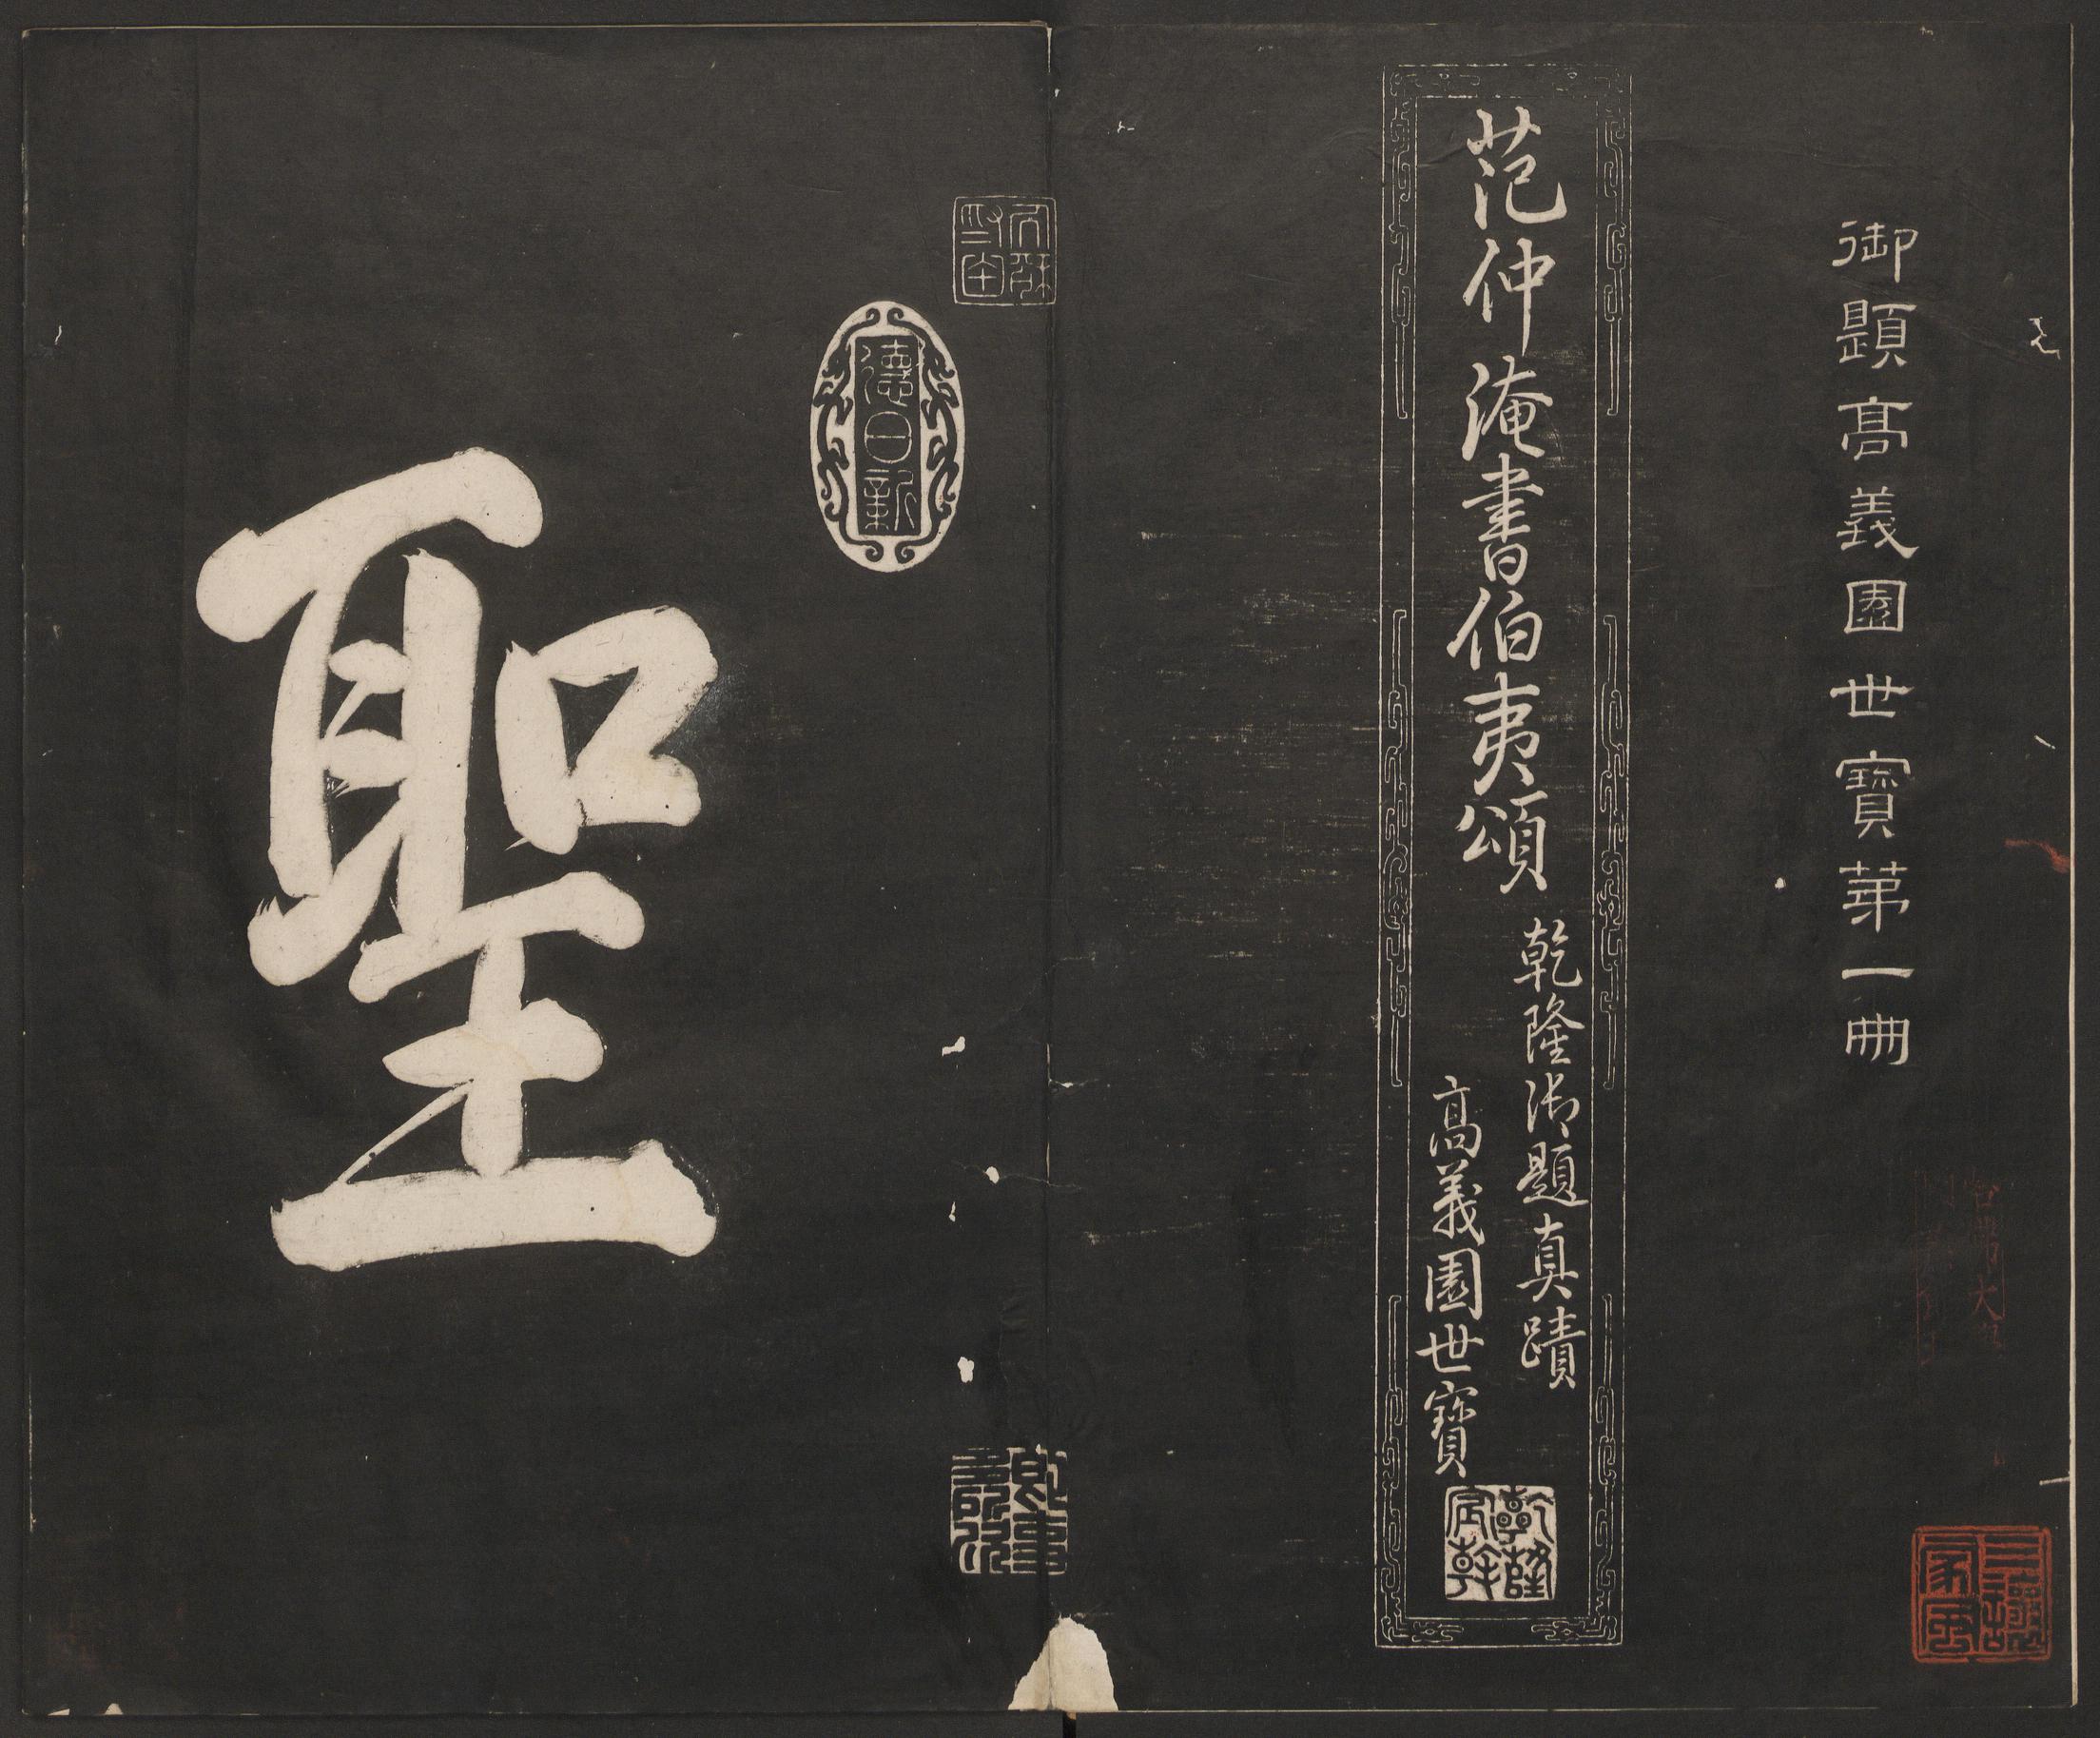 御題髙義園世寶第一冊
范仲淹書伯夷頌
乾隆御題真蹟
高義園世寶
乾隆宸翰
德日新
聖